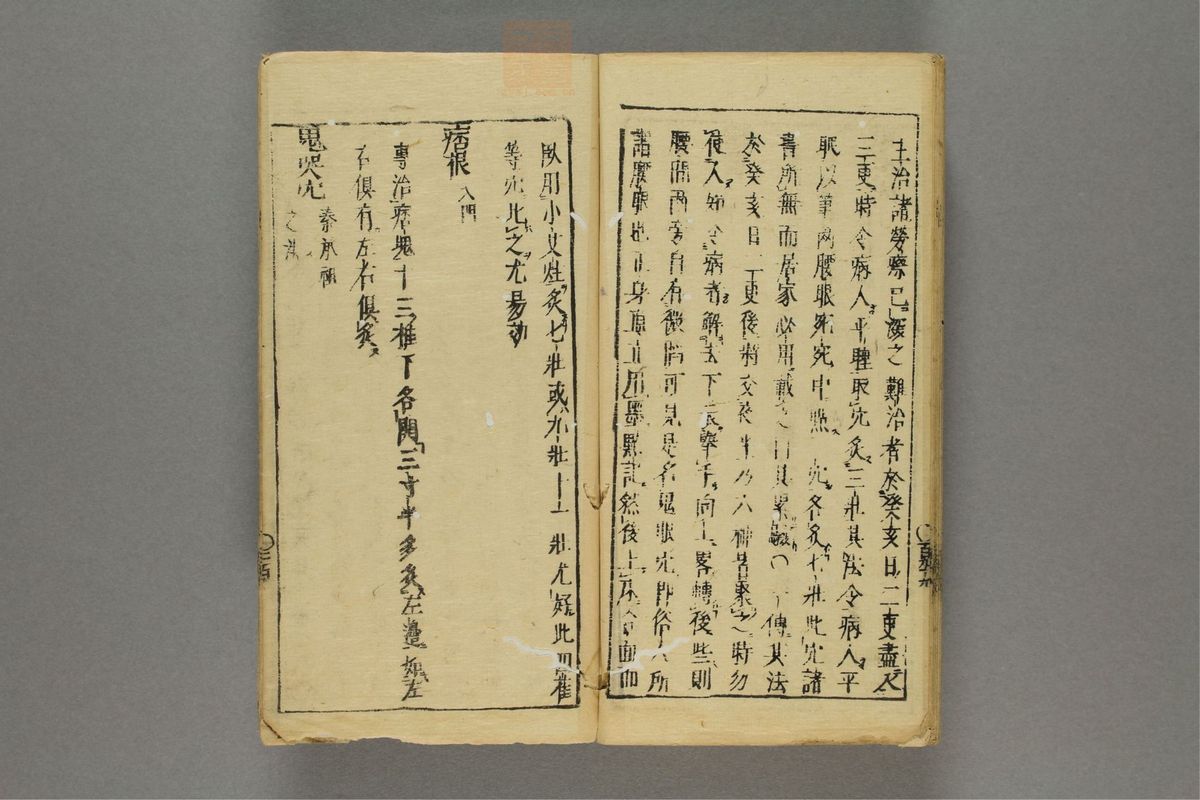 主治諸勞瘵已深之難治者於癸亥日二更盡入
三更時令病人平睡取穴灸三壯其法令病人平
眠以筆兩腰眼宛宛中點二穴各灸七壯此穴諸
書所無而居家必用載之曰其累驗
傳其法
於癸亥日二更後將交癸生乃六神皆聚之時勿
使人知令病者解去下衣舉手向上畧轉後些則
腰間兩旁自有微陷可見是名鬼眼穴即俗人所
謂腰眼也正身直立用墨點記然後上床合面而
臥用小艾炷灸七壯或九壯十一壯尤好此四花
等穴此之尤易効
痞根 入門
專治痞塊十三椎下各開三寸半多灸左邊如左
右俱有左右俱灸
鬼哭穴
秦承祖
之法